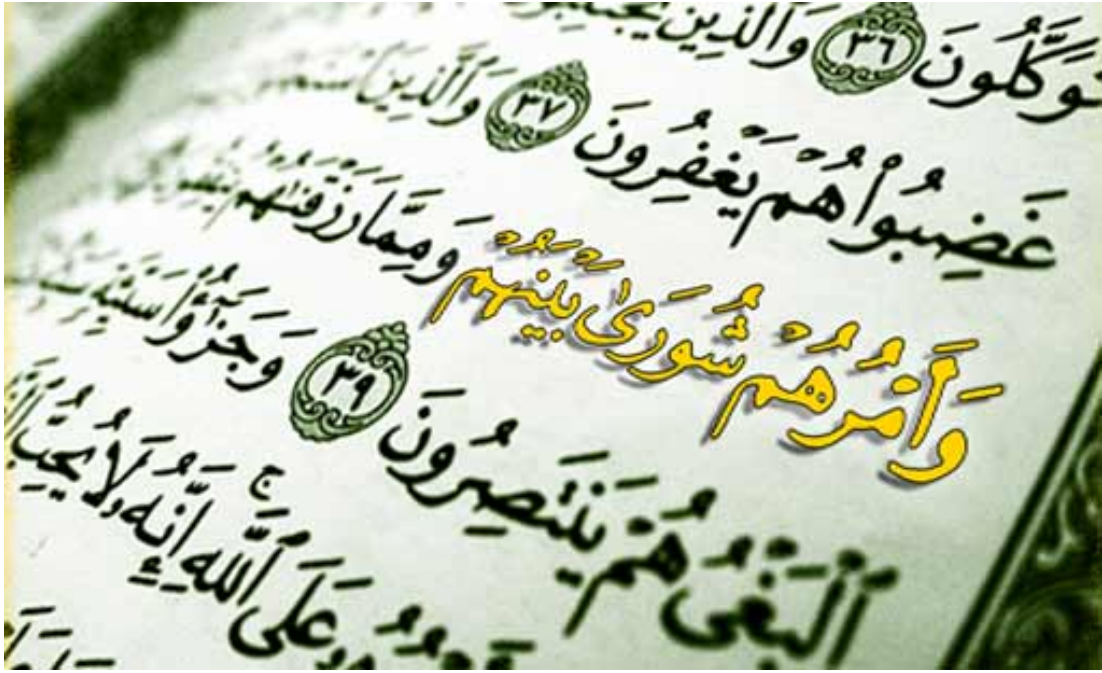 وَكَّلُونَ ٣٦ وَٱلَّذِينَ
غَضِبُوا۟ هُمْ يَغْفِرُونَ ٣٧ وَٱلَّذِينَ
وَأَمْرُهُمْ شُورَىٰ بَيْنَهُمْ وَمِمَّا رَزَقْنَٰهُمْ
ٱلْبَغْىُ هُمْ يَنتَصِرُونَ ٣٩ وَجَزَٰٓؤُا۟ سَيِّئَةٍ
عَلَى ٱللَّهِ ۚ إِنَّهُۥ لَا يُحِبُّ